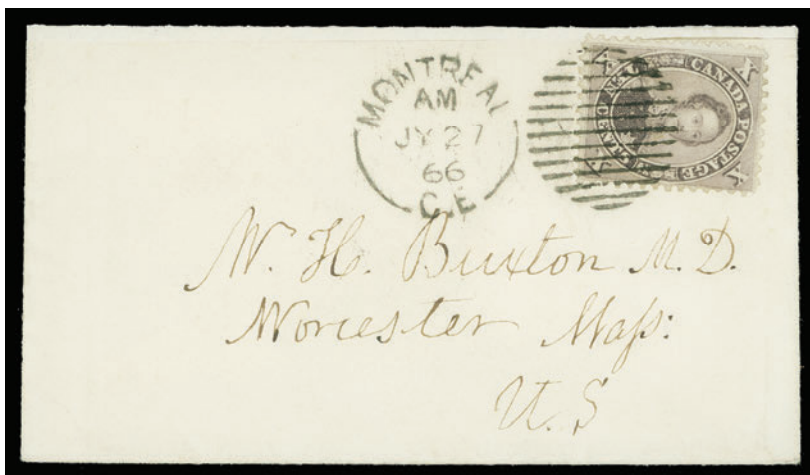 MONTREAL
AM
JY 27
66
C.E
CANADA POSTAGE
X
X
X
X
W. H. Buxton M.D.
Worcester Maſs:
U.S